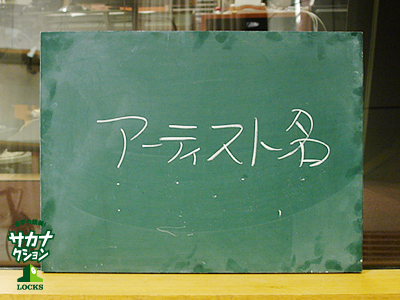 アーティスト名
サカナ
クション
LOCKS